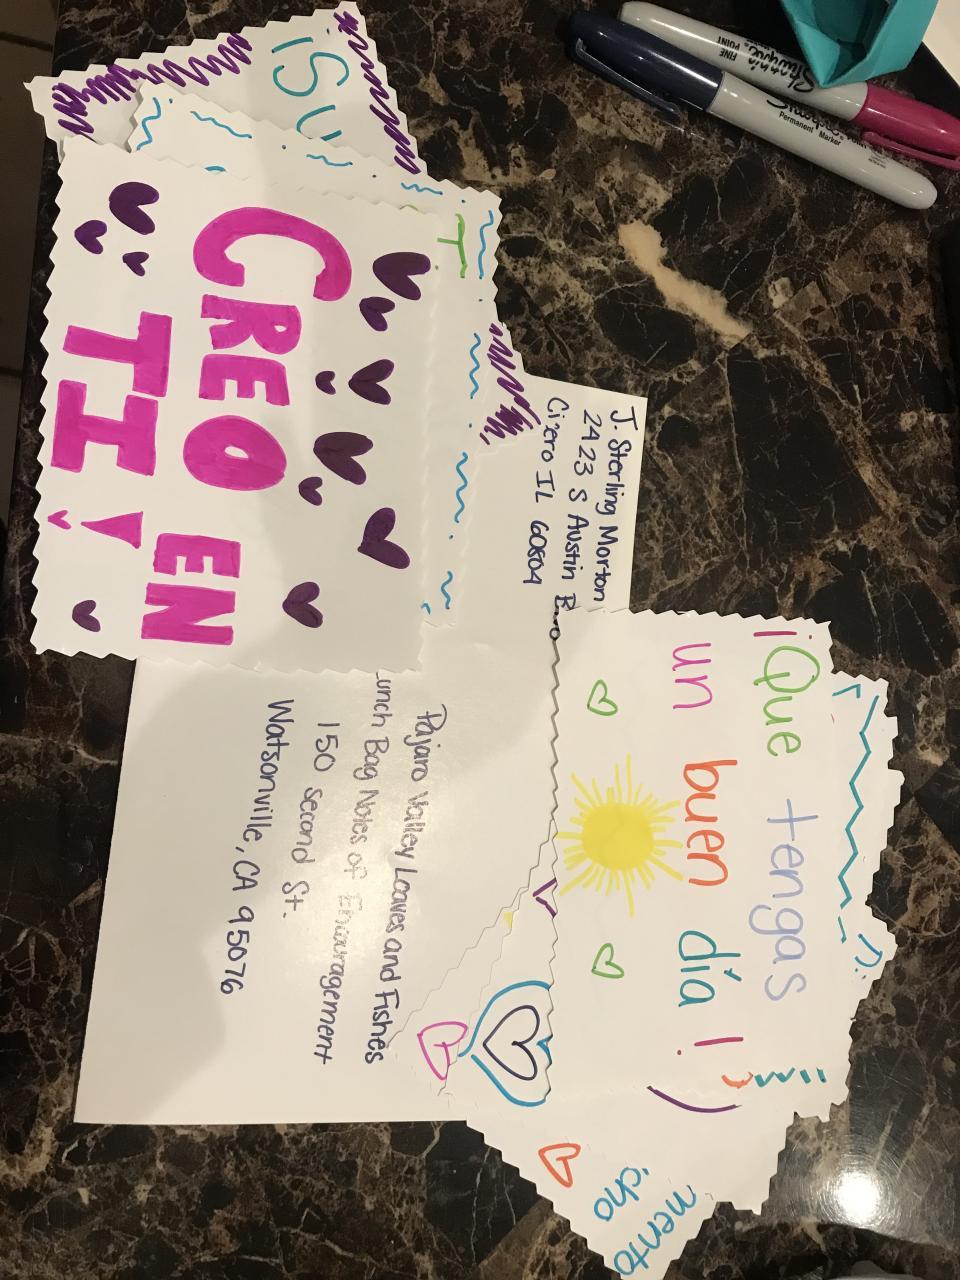 ¡SU
T
CREO
EN
TI!
J. Sterling Morton
2423 S Austin
Cicero IL 60804
Pajaro Valley Loaves and Fishes
Lunch Bag Notes of Encouragement
150 Second St.
Watsonville, CA 95076
¡Que tengas
un buen día!
mento
cho
Sharpie
FINE
POINT
Sharpie
Permanent Marker